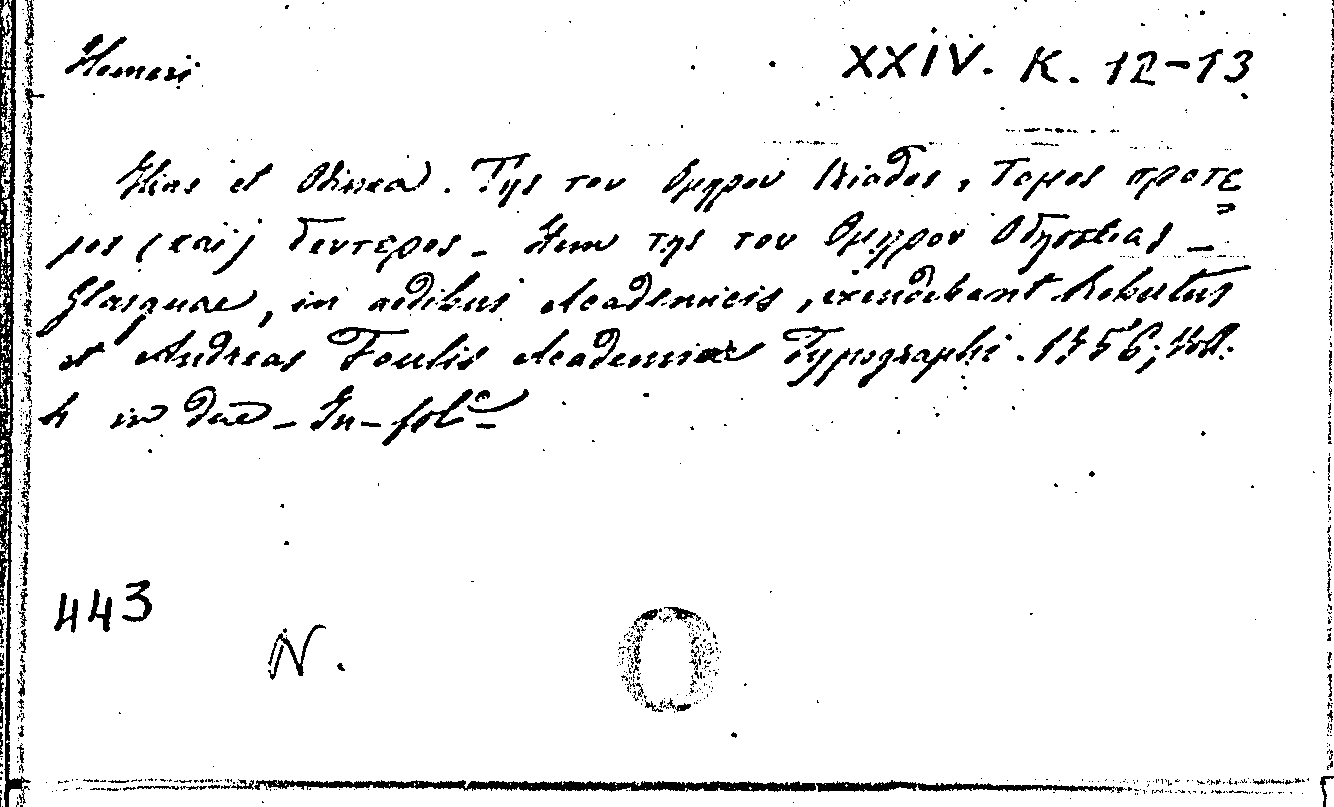 Homeri
XXIV. K. 12-13
Ilias et Odissea. Της του Ομηρου Ιλιαδος, Τομος προτε
ρος (και) δευτερος - Item της του Ομηρου Οδησσειας -
Glasguae, in aedibus Academicis, excudebant Robertus
et Andreas Foulis Academiae Typographi. 1756; Voll.
4 in due - In-fol.º
443
N.